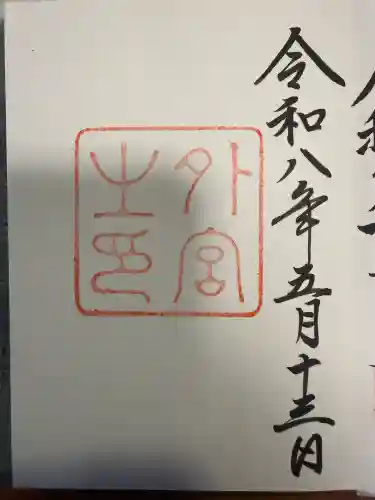 令和八年五月十三日
外宮
之印